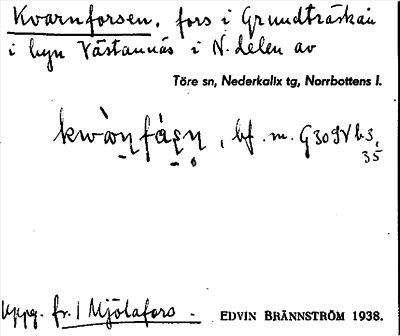 Kvarnforsen, fors i Grundträskån
i byn Västannäs i N. delen av
Töre sn, Nederkalix tg, Norrbottens l.
bf. m. G309V b3,
35
Uppg. fr. / Mjölafors.
EDVIN BRÄNNSTRÖM 1938.